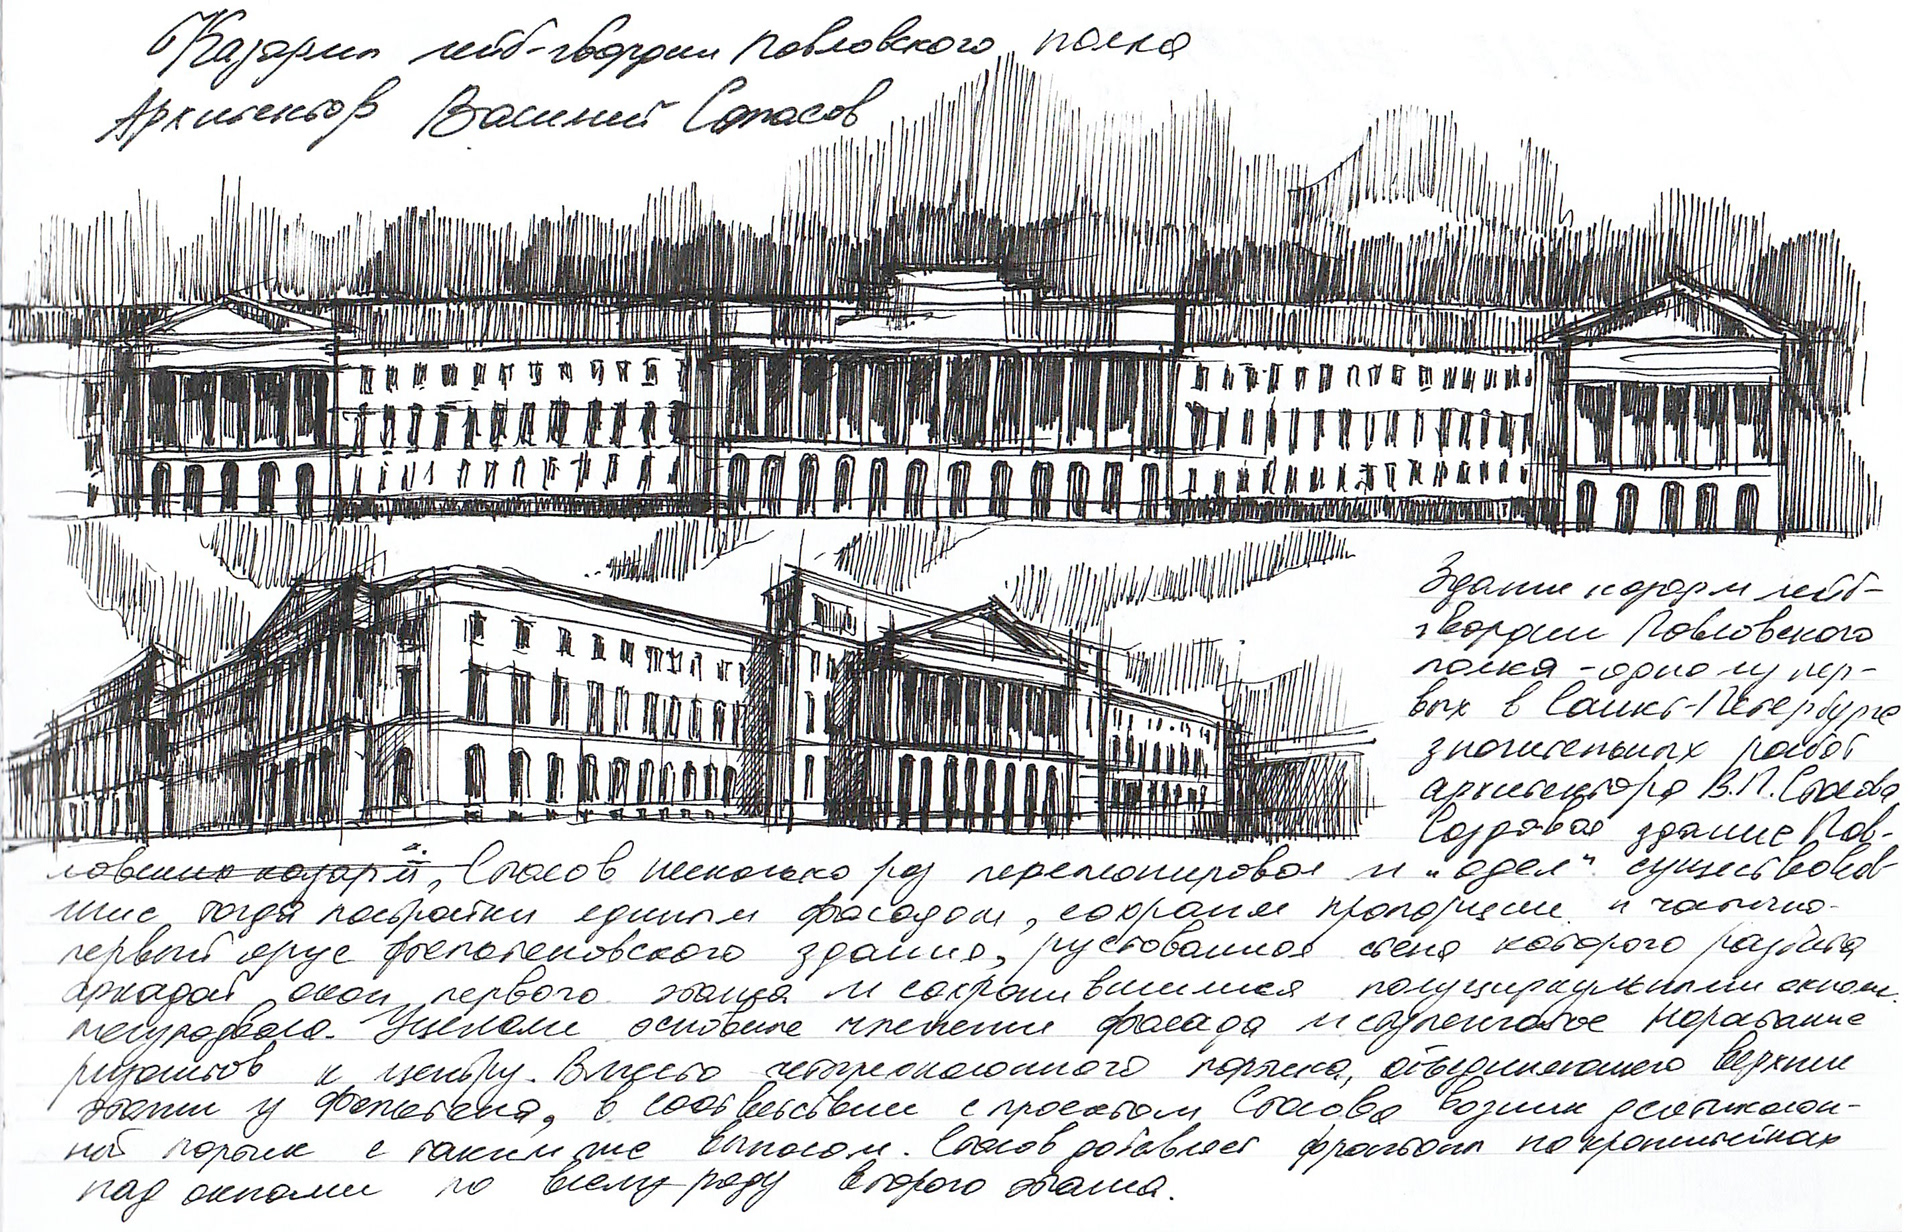 Казармы лейб-гвардии Павловского полка
Архитектор Василий Стасов
Здание казарм лейб-
гвардии Павловского
полка - одна из пер-
вых в Санкт-Петербурге
значительных работ
архитектора В.П. Стасова
Создавая здание Пав-
ловских казарм, Стасов несколько раз перепланировал и "одел" существовав-
шие тогда постройки единым фасадом, сохранив пропорции и частично-
первый ярус фельтеновского здания, рустованная стена которого разбита
аркадой окон первого этажа и сохранившимися полуциркульными окнами
полуподвала. Уцелели основные членения фасада и ступенчатое нарастание
ризалитов к центру. Вместо четырехколонного портика, объединяющего верхние
этажи у Фельтена, в соответствии с проектом Стасова возник десятиколон-
ный портик с таким же выносом. Стасов добавляет фронтоны на кронштейнах
над окнами по всему ряду второго этажа.